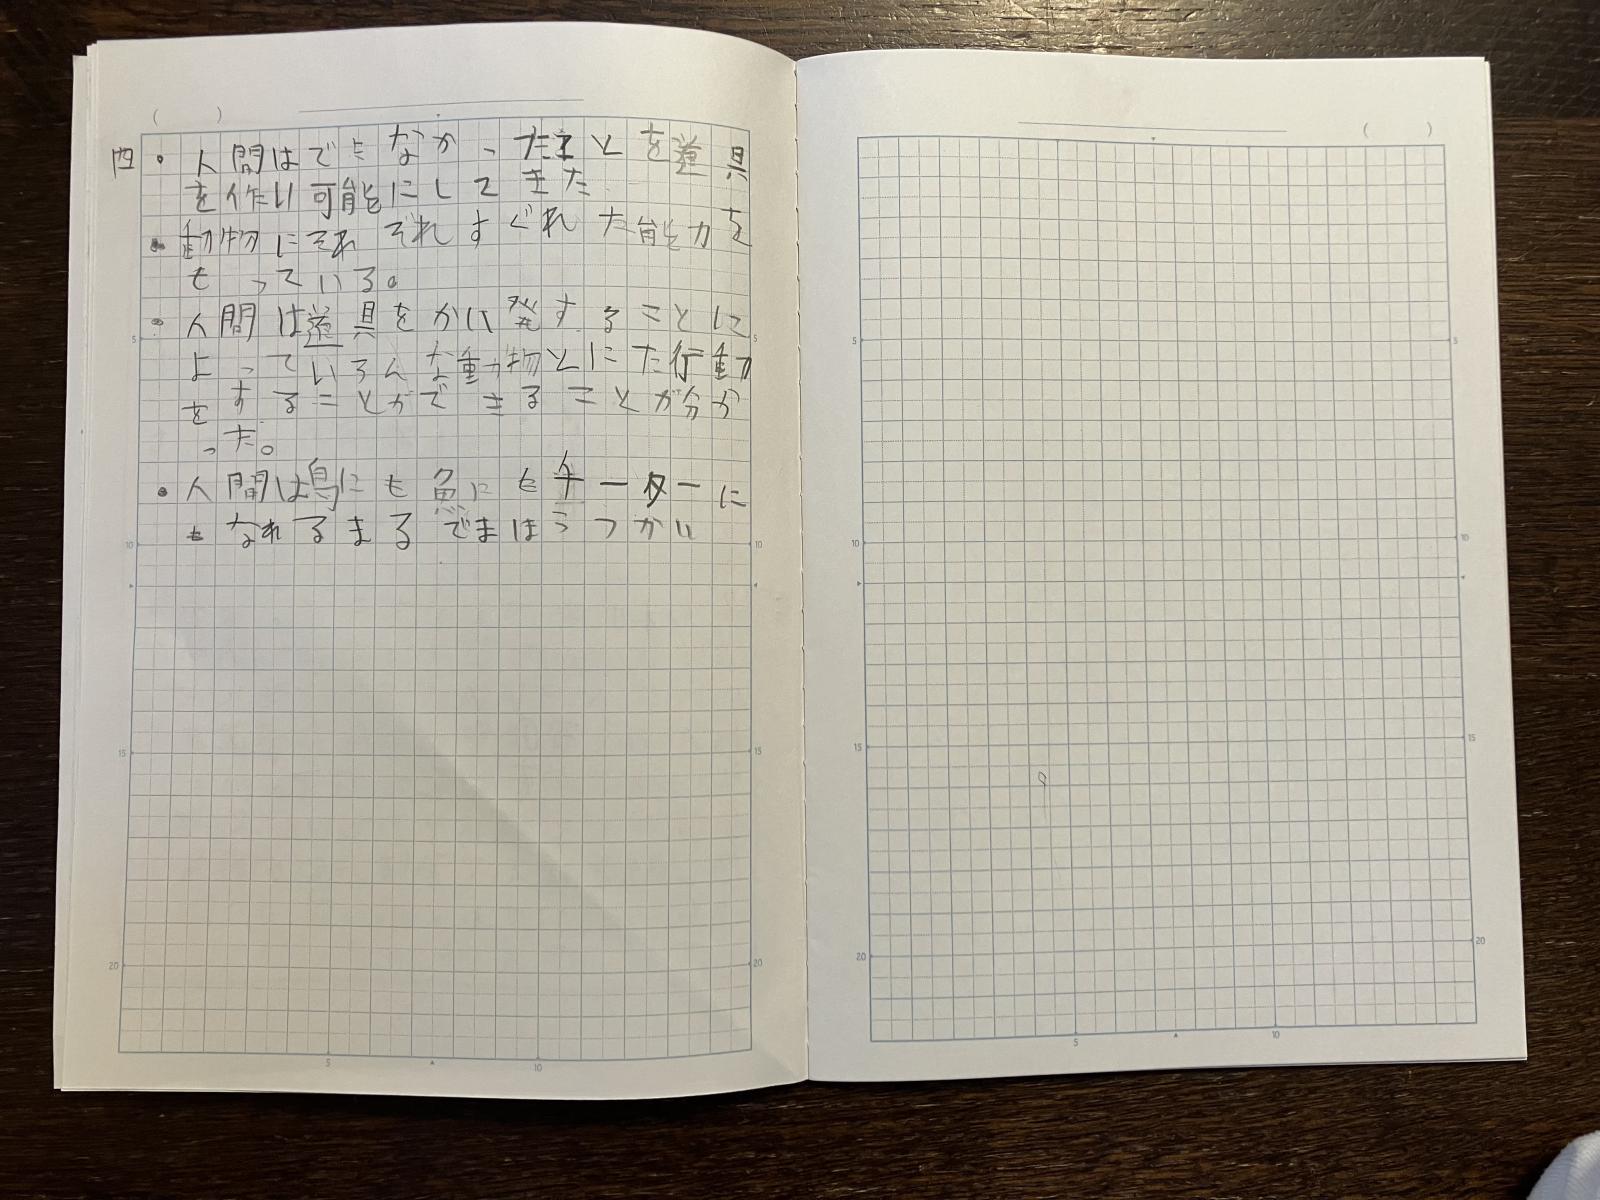 四・人間はできなかったことを道具
を作い可能にしてきた
・動物にそれぞれすぐれた能力を
もっている。
・人間は道具をかい発することに
よっていろんな動物とにた行動
をすることができることが分か
った。
・人間は鳥にも魚にもチーターに
もなれるまるでまほうつかい